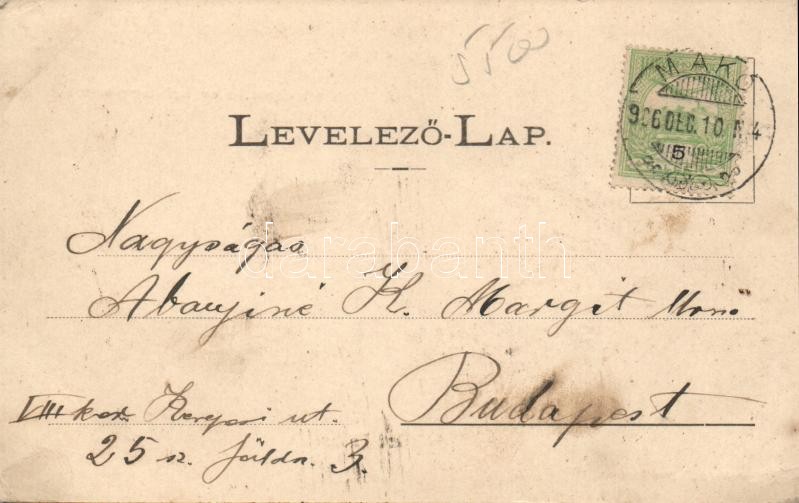 5500
MAKÓ
906 DEC. 10. N. 4
5
LEVELEZŐ-LAP.
darabanth
Nagyságos
Abaujiné K. Margit
Budapest
VIII ker. Kerepesi ut.
25 sz. földsz. 3.